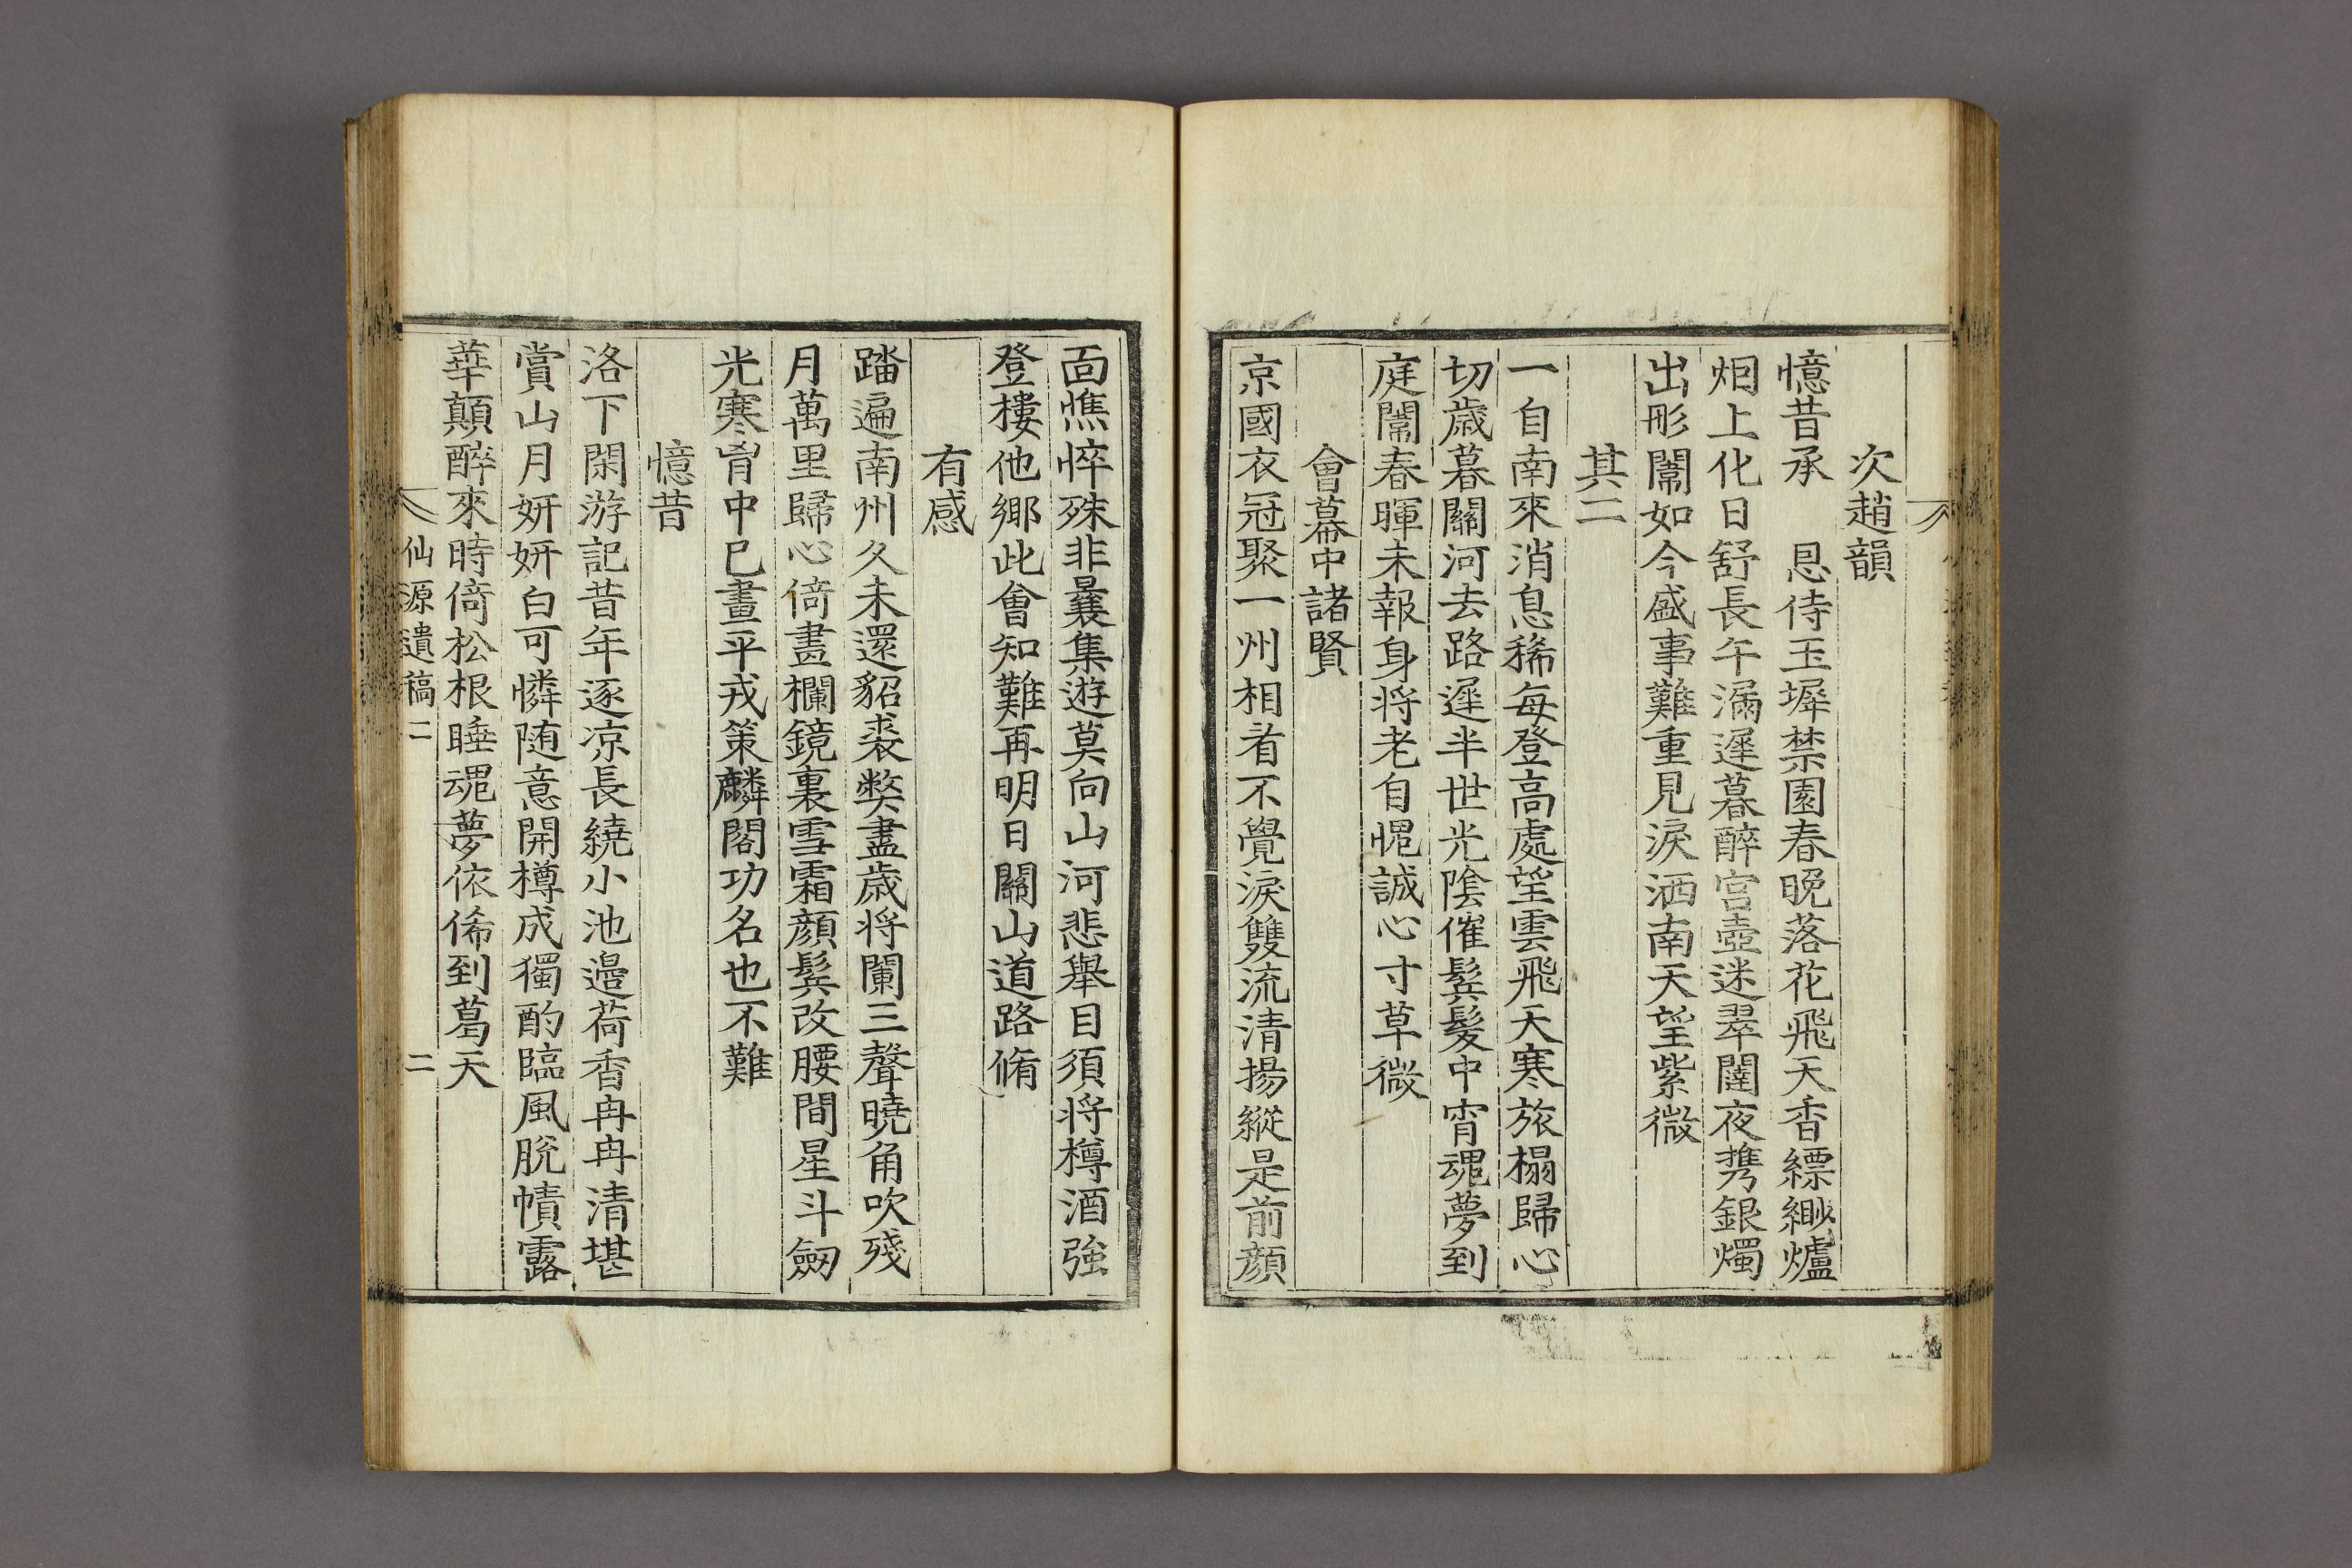 次趙韻
憶昔承　恩侍玉墀禁園春晩落花飛天香縹緲爐
烟上化日舒長午漏遲暮醉宮壺迷翠闥夜携銀燭
出彤闈如今盛事難重見淚洒南天望紫微
其二
一自南來消息稀每登高處望雲飛天寒旅榻歸心
切歲暮關河去路遲半世光陰催鬂髮中宵魂夢到
庭闈春暉未報身将老自愧誠心寸草微
會幕中諸賢
京國衣冠聚一州相看不覺淚雙流清揚縱是前顔
面憔悴殊非曩集遊莫向山河悲舉目須将樽酒強
登樓他鄉此會知難再明日關山道路脩
有感
踏遍南州久未還貂裘弊盡歲将闌三聲曉角吹殘
月萬里歸心倚畫欄鏡裏雪霜顔鬂改腰間星斗劒
光寒胷中已畫平戎策麟閣功名也不難
憶昔
洛下閑游記昔年逐凉長繞小池邊荷香冉冉清堪
賞山月妍妍白可憐随意開樽成獨酌臨風脫幘露
華顛醉來時倚松根睡魂夢依俙到葛天
仙源遺稿二　二